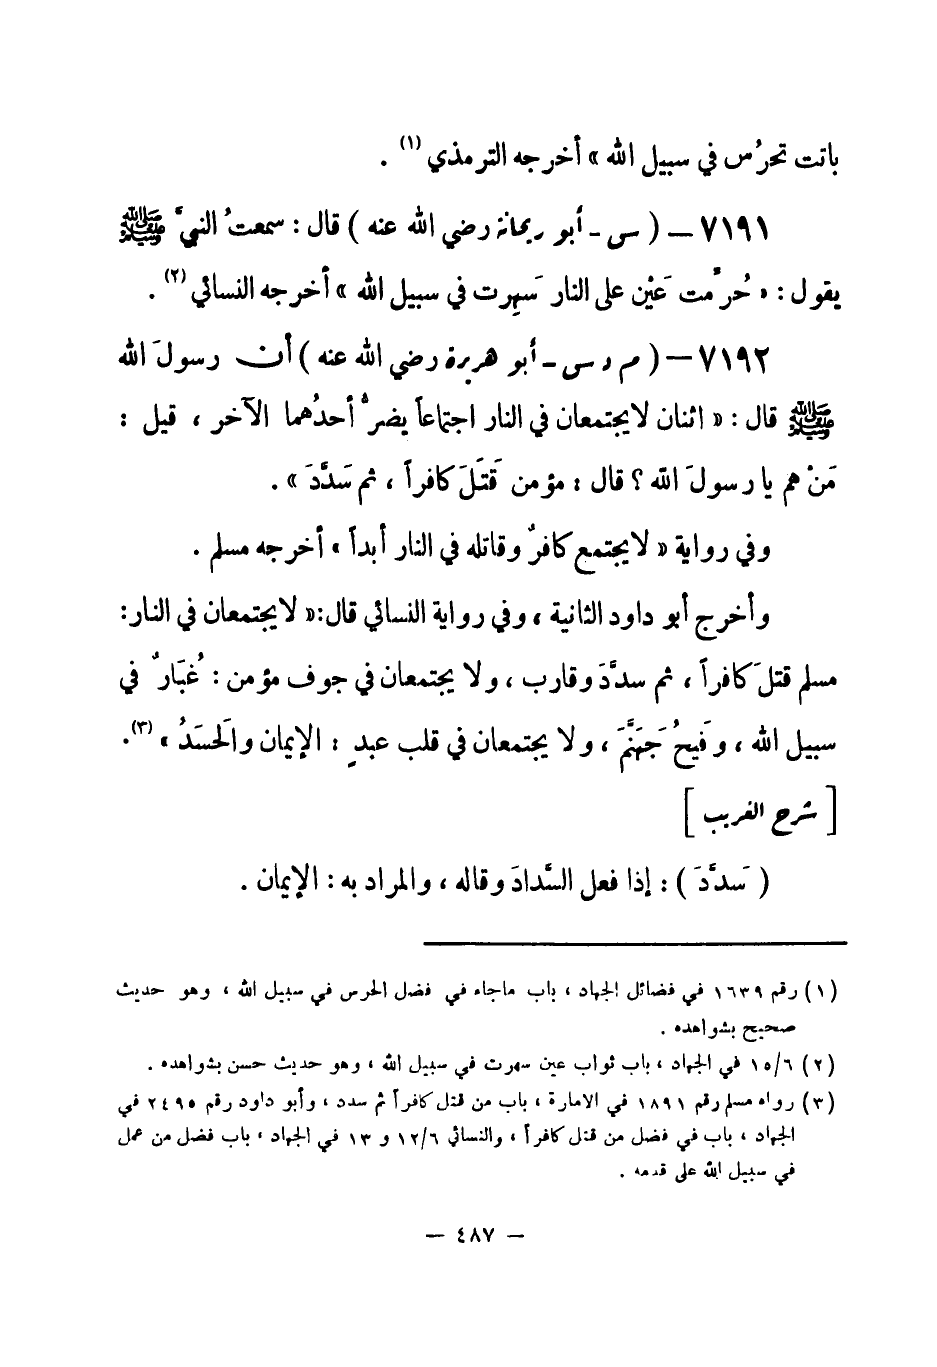 باتت تحرُس في سبيل الله » أخرجه الترمذي (١) .
٧١٩١ – ( س - أبو ريحانة رضي الله عنه ) قال : سمعتُ النبيَّ ﷺ
يقول : « حُرِّمت عَيْن على النار سَهِرت في سبيل الله » أخرجه النسائي (٢) .
٧١٩٢ – ( م د س - أبو هريرة رضي الله عنه ) أن رسولَ الله
ﷺ قال : « اثنان لا يجتمعان في النار اجتماعاً يضرُّ أحدُهما الآخر ، قيل :
مَنْ هم يا رسولَ الله ؟ قال : مؤمن قَتَلَ كافراً ، ثم سَدَّدَ » .
وفي رواية « لا يجتمع كافرٌ وقاتله في النار أبداً » أخرجه مسلم .
وأخرج أبو داود الثانية ، وفي رواية النسائي قال :« لا يجتمعان في النار :
مسلم قتلَ كافراً ، ثم سدَّدَ وقارب ، ولا يجتمعان في جوف مؤمن : غُبَارٌ في
سبيل الله ، وفَيحُ جَهَنَّمَ ، ولا يجتمعان في قلب عبدٍ : الإيمان والحَسَدُ » (٣).
[ شرح الغريب ]
( سَدَّدَ ) : إذا فعل السَّدادَ وقاله ، والمراد به : الإيمان .
(١) رقم ١٦٣٩ في فضائل الجهاد ، باب ماجاء في فضل الحرس في سبيل الله ، وهو حديث
صحيح بشواهده .
(٢) ١٥/٦ في الجهاد ، باب ثواب عين سهرت في سبيل الله ، وهو حديث حسن بشواهده .
(٣) رواه مسلم رقم ١٨٩١ في الامارة ، باب من قتل كافراً ثم سدد ، وأبو داود رقم ٢٤٩٥ في
الجهاد ، باب في فضل من قتل كافراً ، والنسائي ١٢/٦ و ١٣ في الجهاد ، باب فضل من عمل
في سبيل الله على قدمه .
– ٤٨٧ –